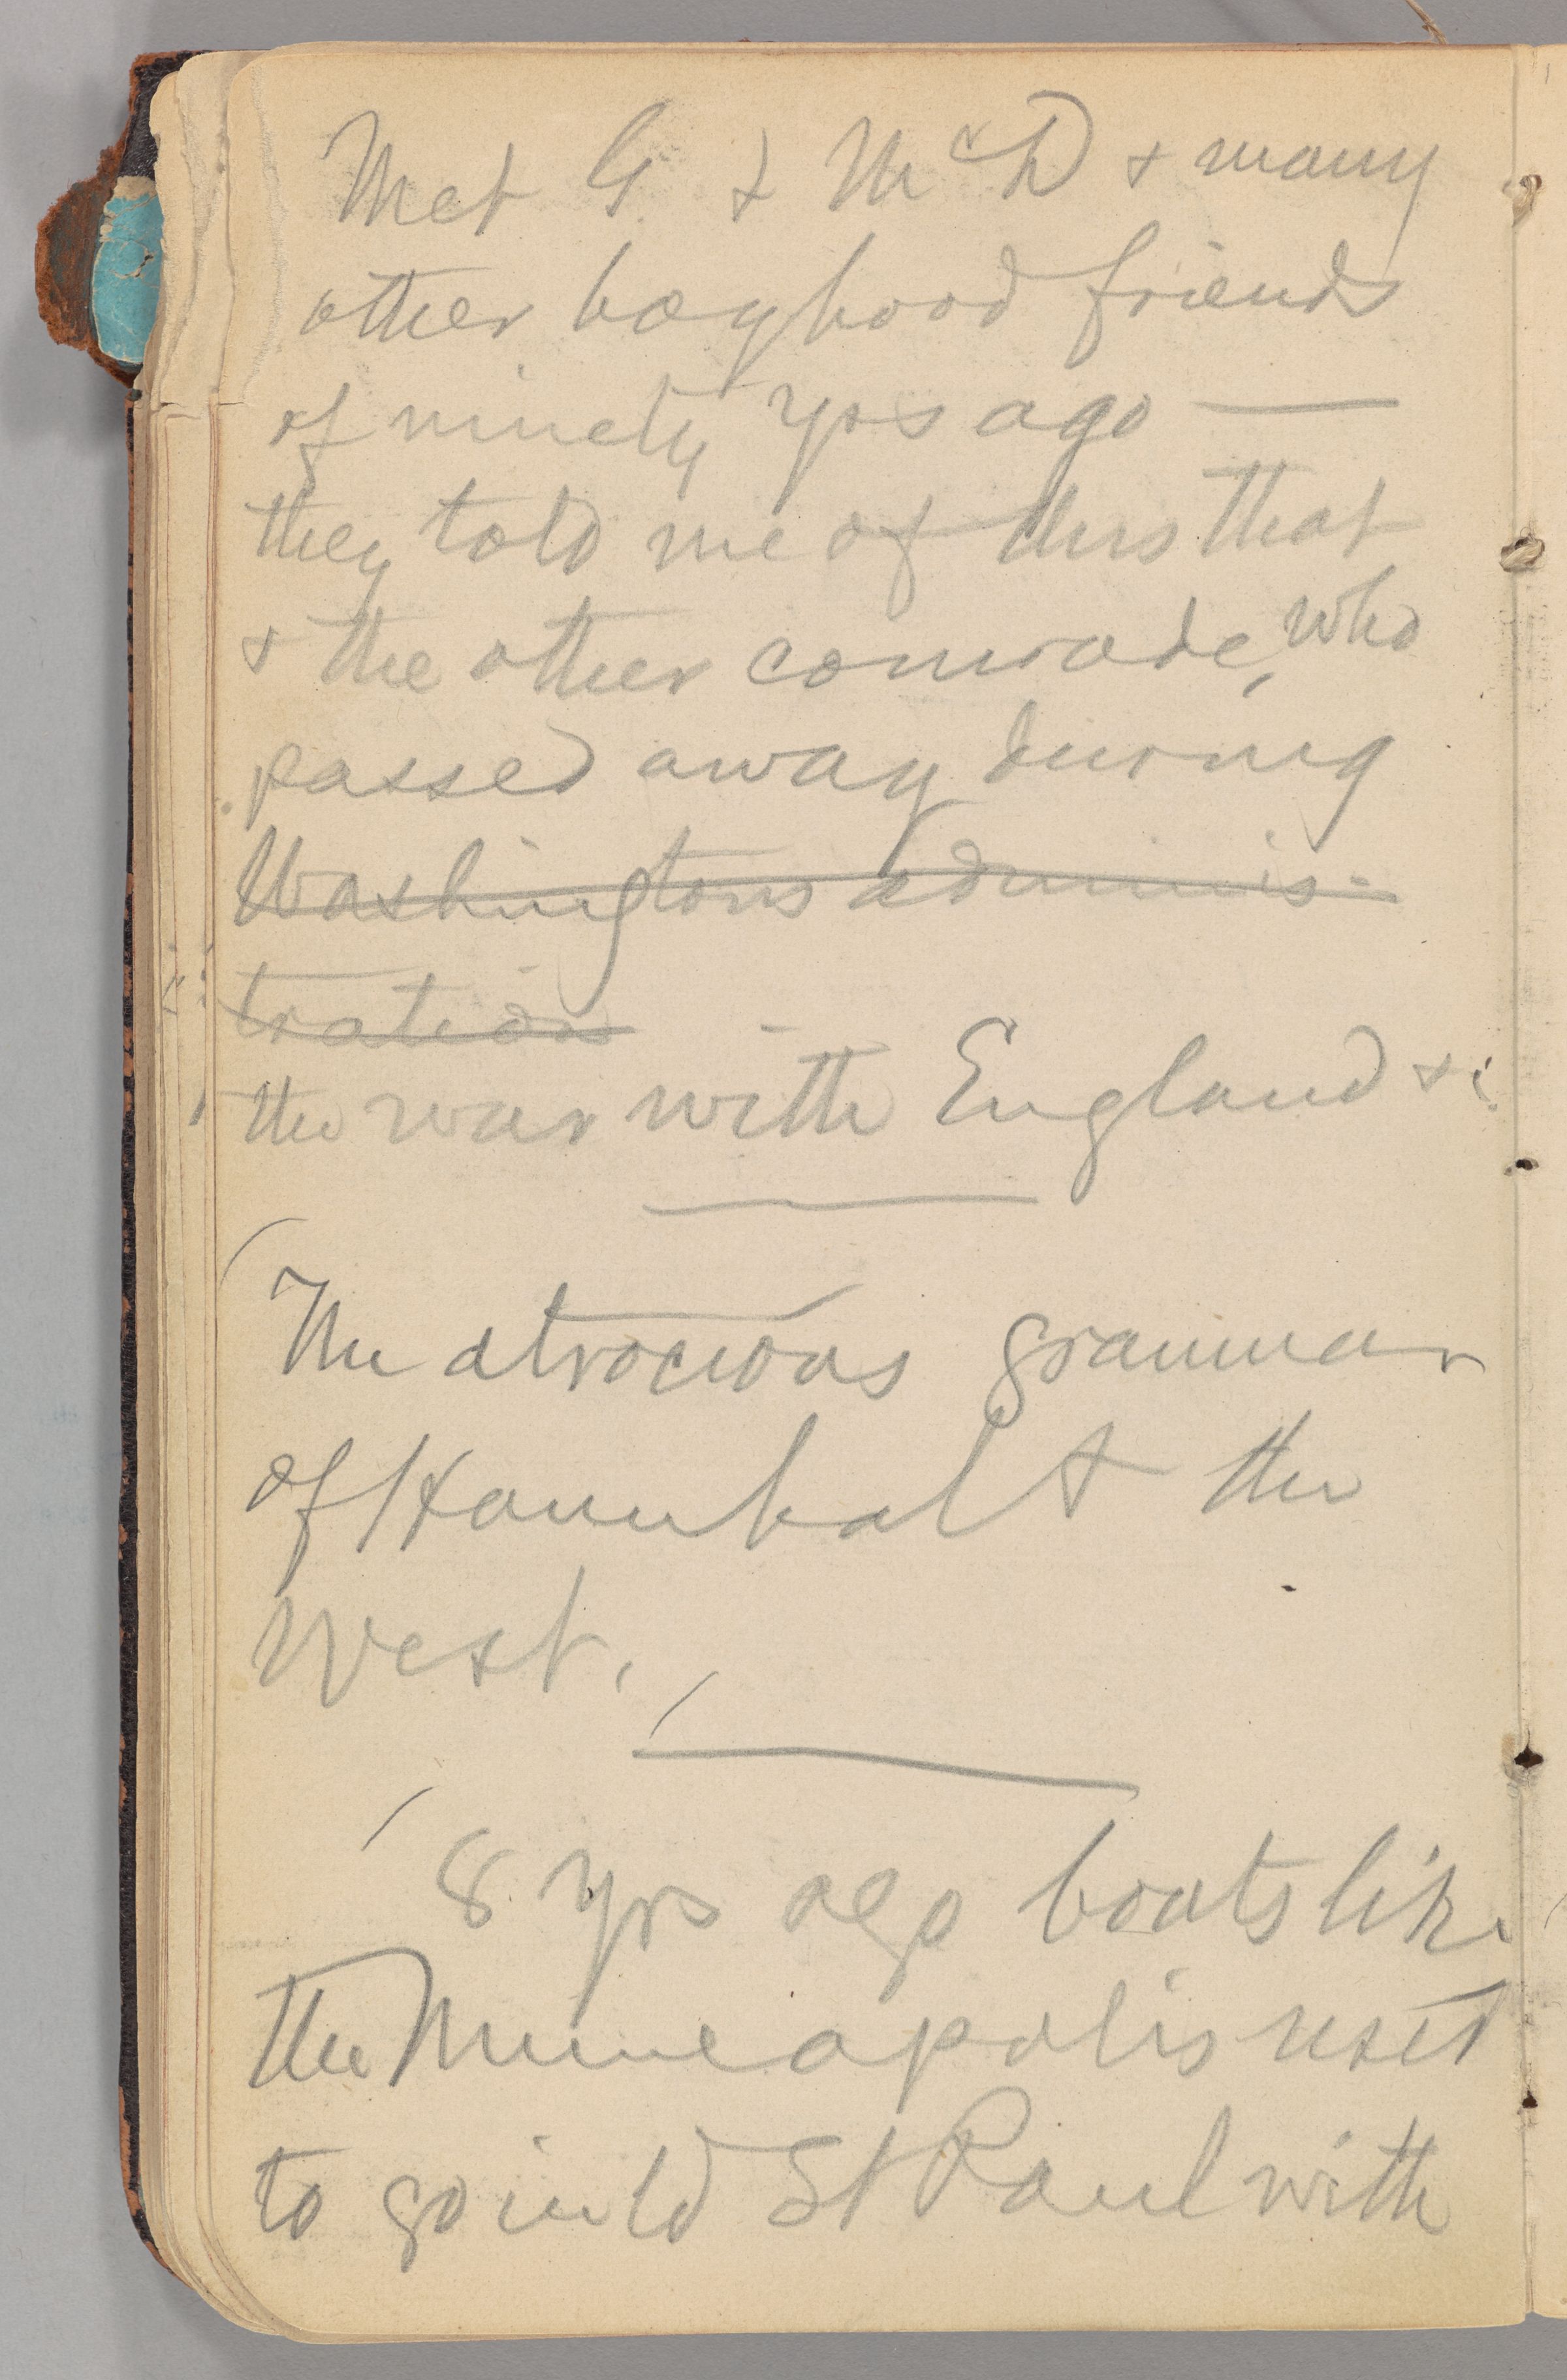 Met G. & McD & many
other boyhood friends
of ninety yrs ago —
they told me of this that
& the other comrade, who
passed away during
Washingtons adminis-
tration
the war with England &c.
The atrocious grammar
of Hannibal & the
West.
8 yrs ago boats like
the Minneapolis used
to go into St Paul with